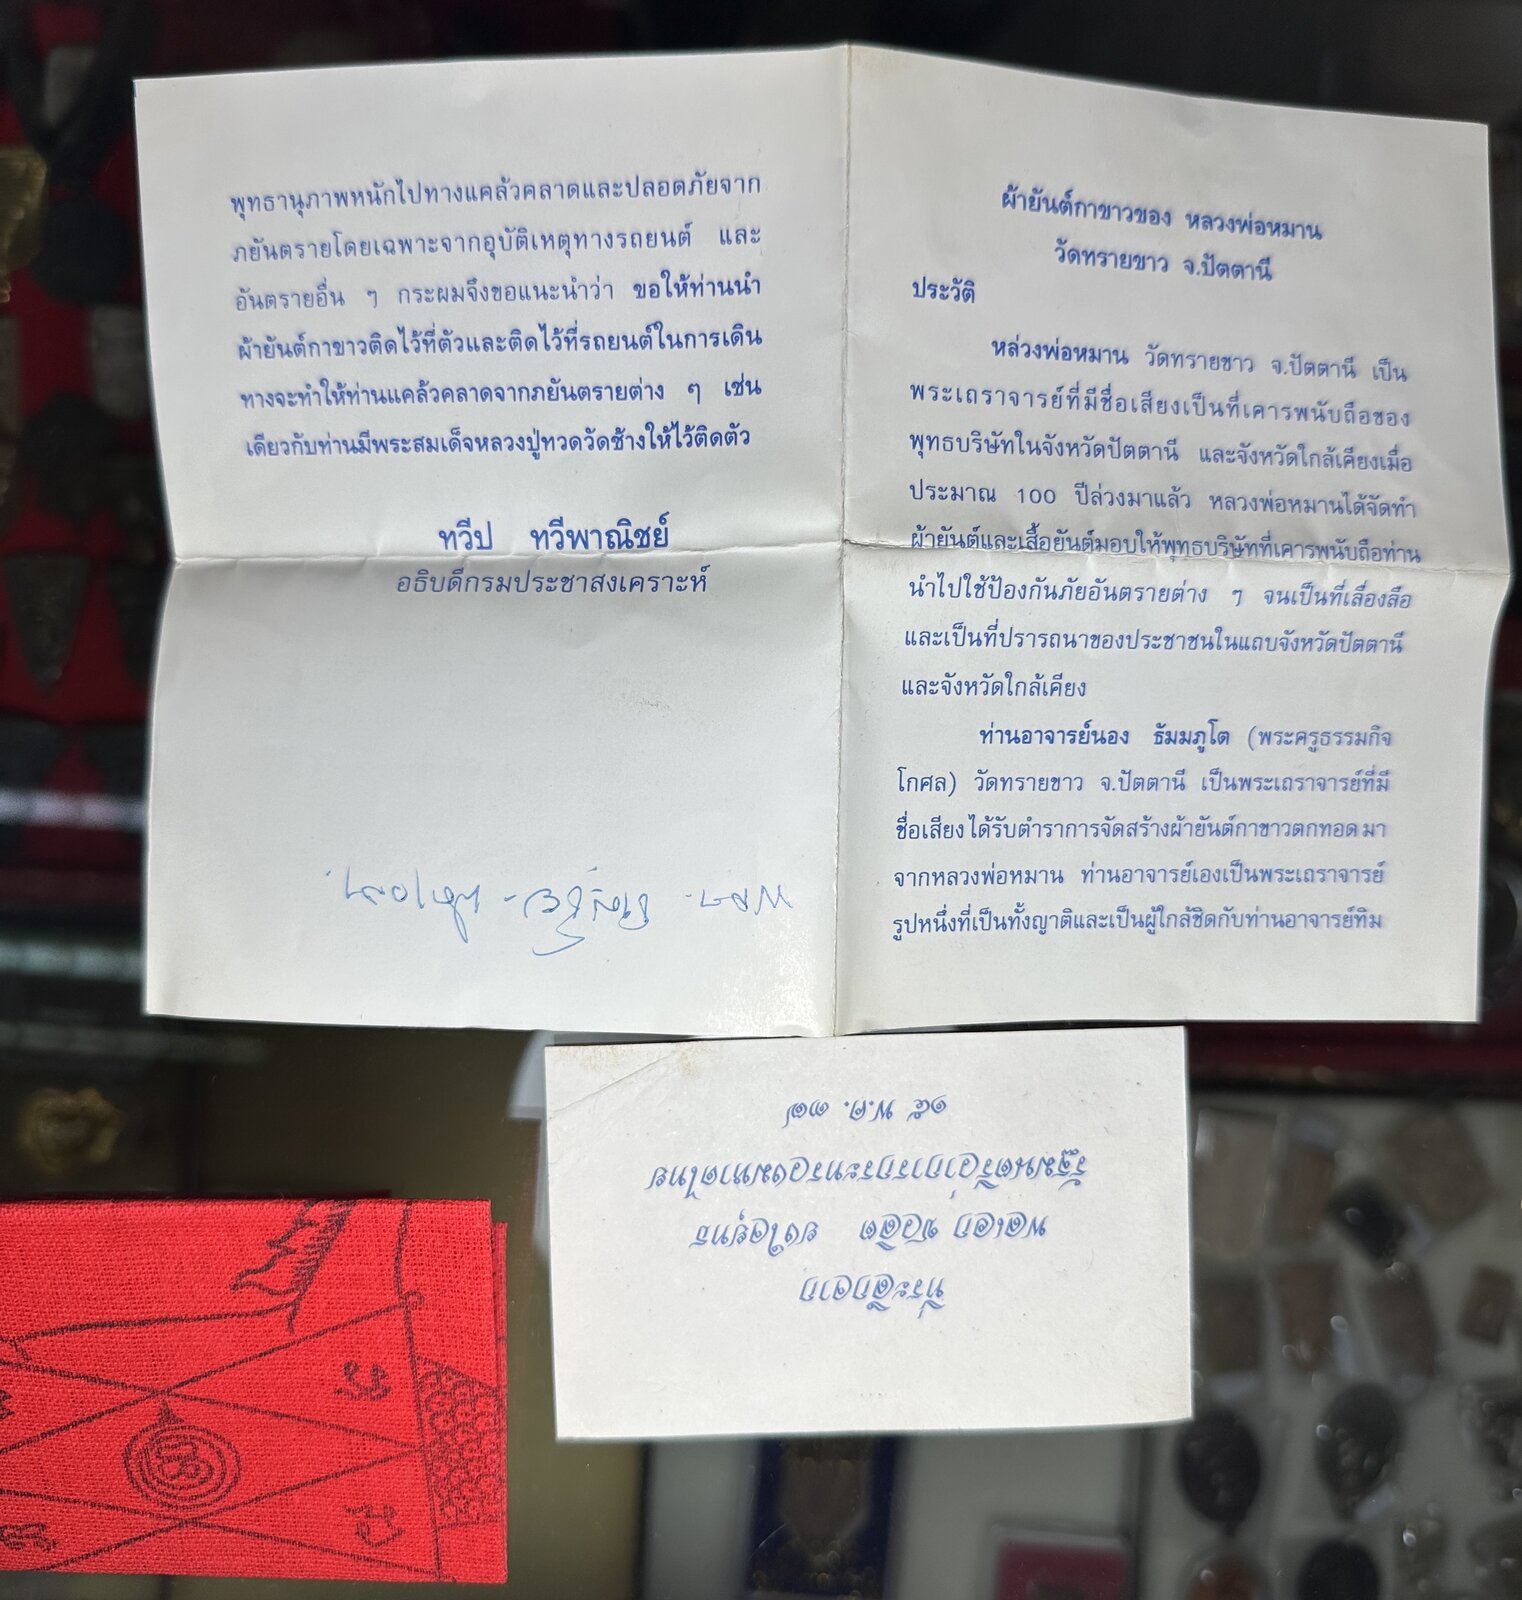 ผ้ายันต์กาขาวของ หลวงพ่อหมาน
วัดทรายขาว จ.ปัตตานี
ประวัติ
หล่วงพ่อหมาน วัดทรายขาว จ.ปัตตานี เป็น
พระเถราจารย์ที่มีชื่อเสียงเป็นที่เคารพนับถือของ
พุทธบริษัทในจังหวัดปัตตานี และจังหวัดใกล้เคียงเมื่อ
ประมาณ 100 ปีล่วงมาแล้ว หลวงพ่อหมานได้จัดทำ
ผ้ายันต์และเสื้อยันต์มอบให้พุทธบริษัทที่เคารพนับถือท่าน
นำไปใช้ป้องกันภัยอันตรายต่าง ๆ จนเป็นที่เลื่องลือ
และเป็นที่ปรารถนาของประชาชนในแถบจังหวัดปัตตานี
และจังหวัดใกล้เคียง
ท่านอาจารย์นอง ธัมมภูโต (พระครูธรรมกิจ
โกศล) วัดทรายขาว จ.ปัตตานี เป็นพระเถราจารย์ที่มี
ชื่อเสียงได้รับตำราการจัดสร้างผ้ายันต์กาขาวตกทอดมา
จากหลวงพ่อหมาน ท่านอาจารย์เองเป็นพระเถราจารย์
รูปหนึ่งที่เป็นทั้งญาติและเป็นผู้ใกล้ชิดกับท่านอาจารย์ทิม
พุทธานุภาพหนักไปทางแคล้วคลาดและปลอดภัยจาก
ภยันตรายโดยเฉพาะจากอุบัติเหตุทางรถยนต์ และ
อันตรายอื่น ๆ กระผมจึงขอแนะนำว่า ขอให้ท่านนำ
ผ้ายันต์กาขาวติดไว้ที่ตัวและติดไว้ที่รถยนต์ในการเดิน
ทางจะทำให้ท่านแคล้วคลาดจากภยันตรายต่าง ๆ เช่น
เดียวกับท่านมีพระสมเด็จหลวงปู่ทวดวัดช้างให้ไว้ติดตัว
ทวีป ทวีพาณิชย์
อธิบดีกรมประชาสงเคราะห์
ที่ระลึกจาก
พลเอก ชวลิต ยงใจยุทธ
รัฐมนตรีว่าการกระทรวงมหาดไทย
๑๕ พ.ค. ๓๗